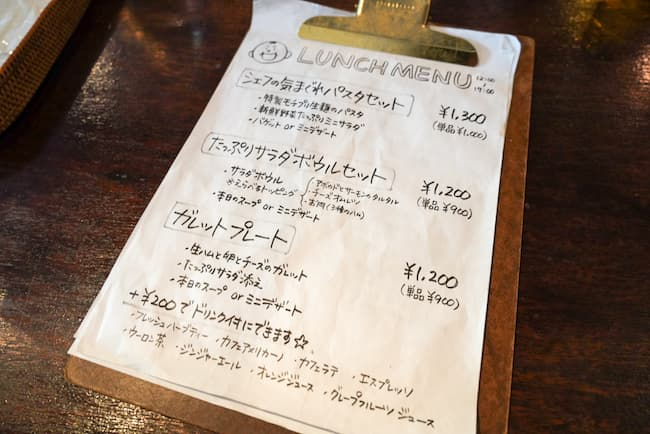 LUNCH MENU 12:00〜17:00
シェフの気まぐれパスタセット ¥1,300
・特製モチプリ生麺のパスタ (単品¥1,000)
・新鮮野菜たっぷりミニサラダ
・バゲット or ミニデザート
たっぷりサラダボウルセット ¥1,200
・サラダボウル (単品¥900)
※えらべるトッピング
・アボカドとサーモンのタルタル
・チーズオムレツ
・お肉(3種のハム)
・本日のスープ or ミニデザート
ガレットプレート ¥1,200
・生ハムと卵とチーズのガレット (単品¥900)
・たっぷりサラダ添え
・本日のスープ or ミニデザート
+¥200でドリンク付にできます☆
・フレッシュハーブティー ・カフェアメリカーノ ・カフェラテ ・エスプレッソ
・ウーロン茶 ・ジンジャーエール ・オレンジジュース ・グレープフルーツジュース